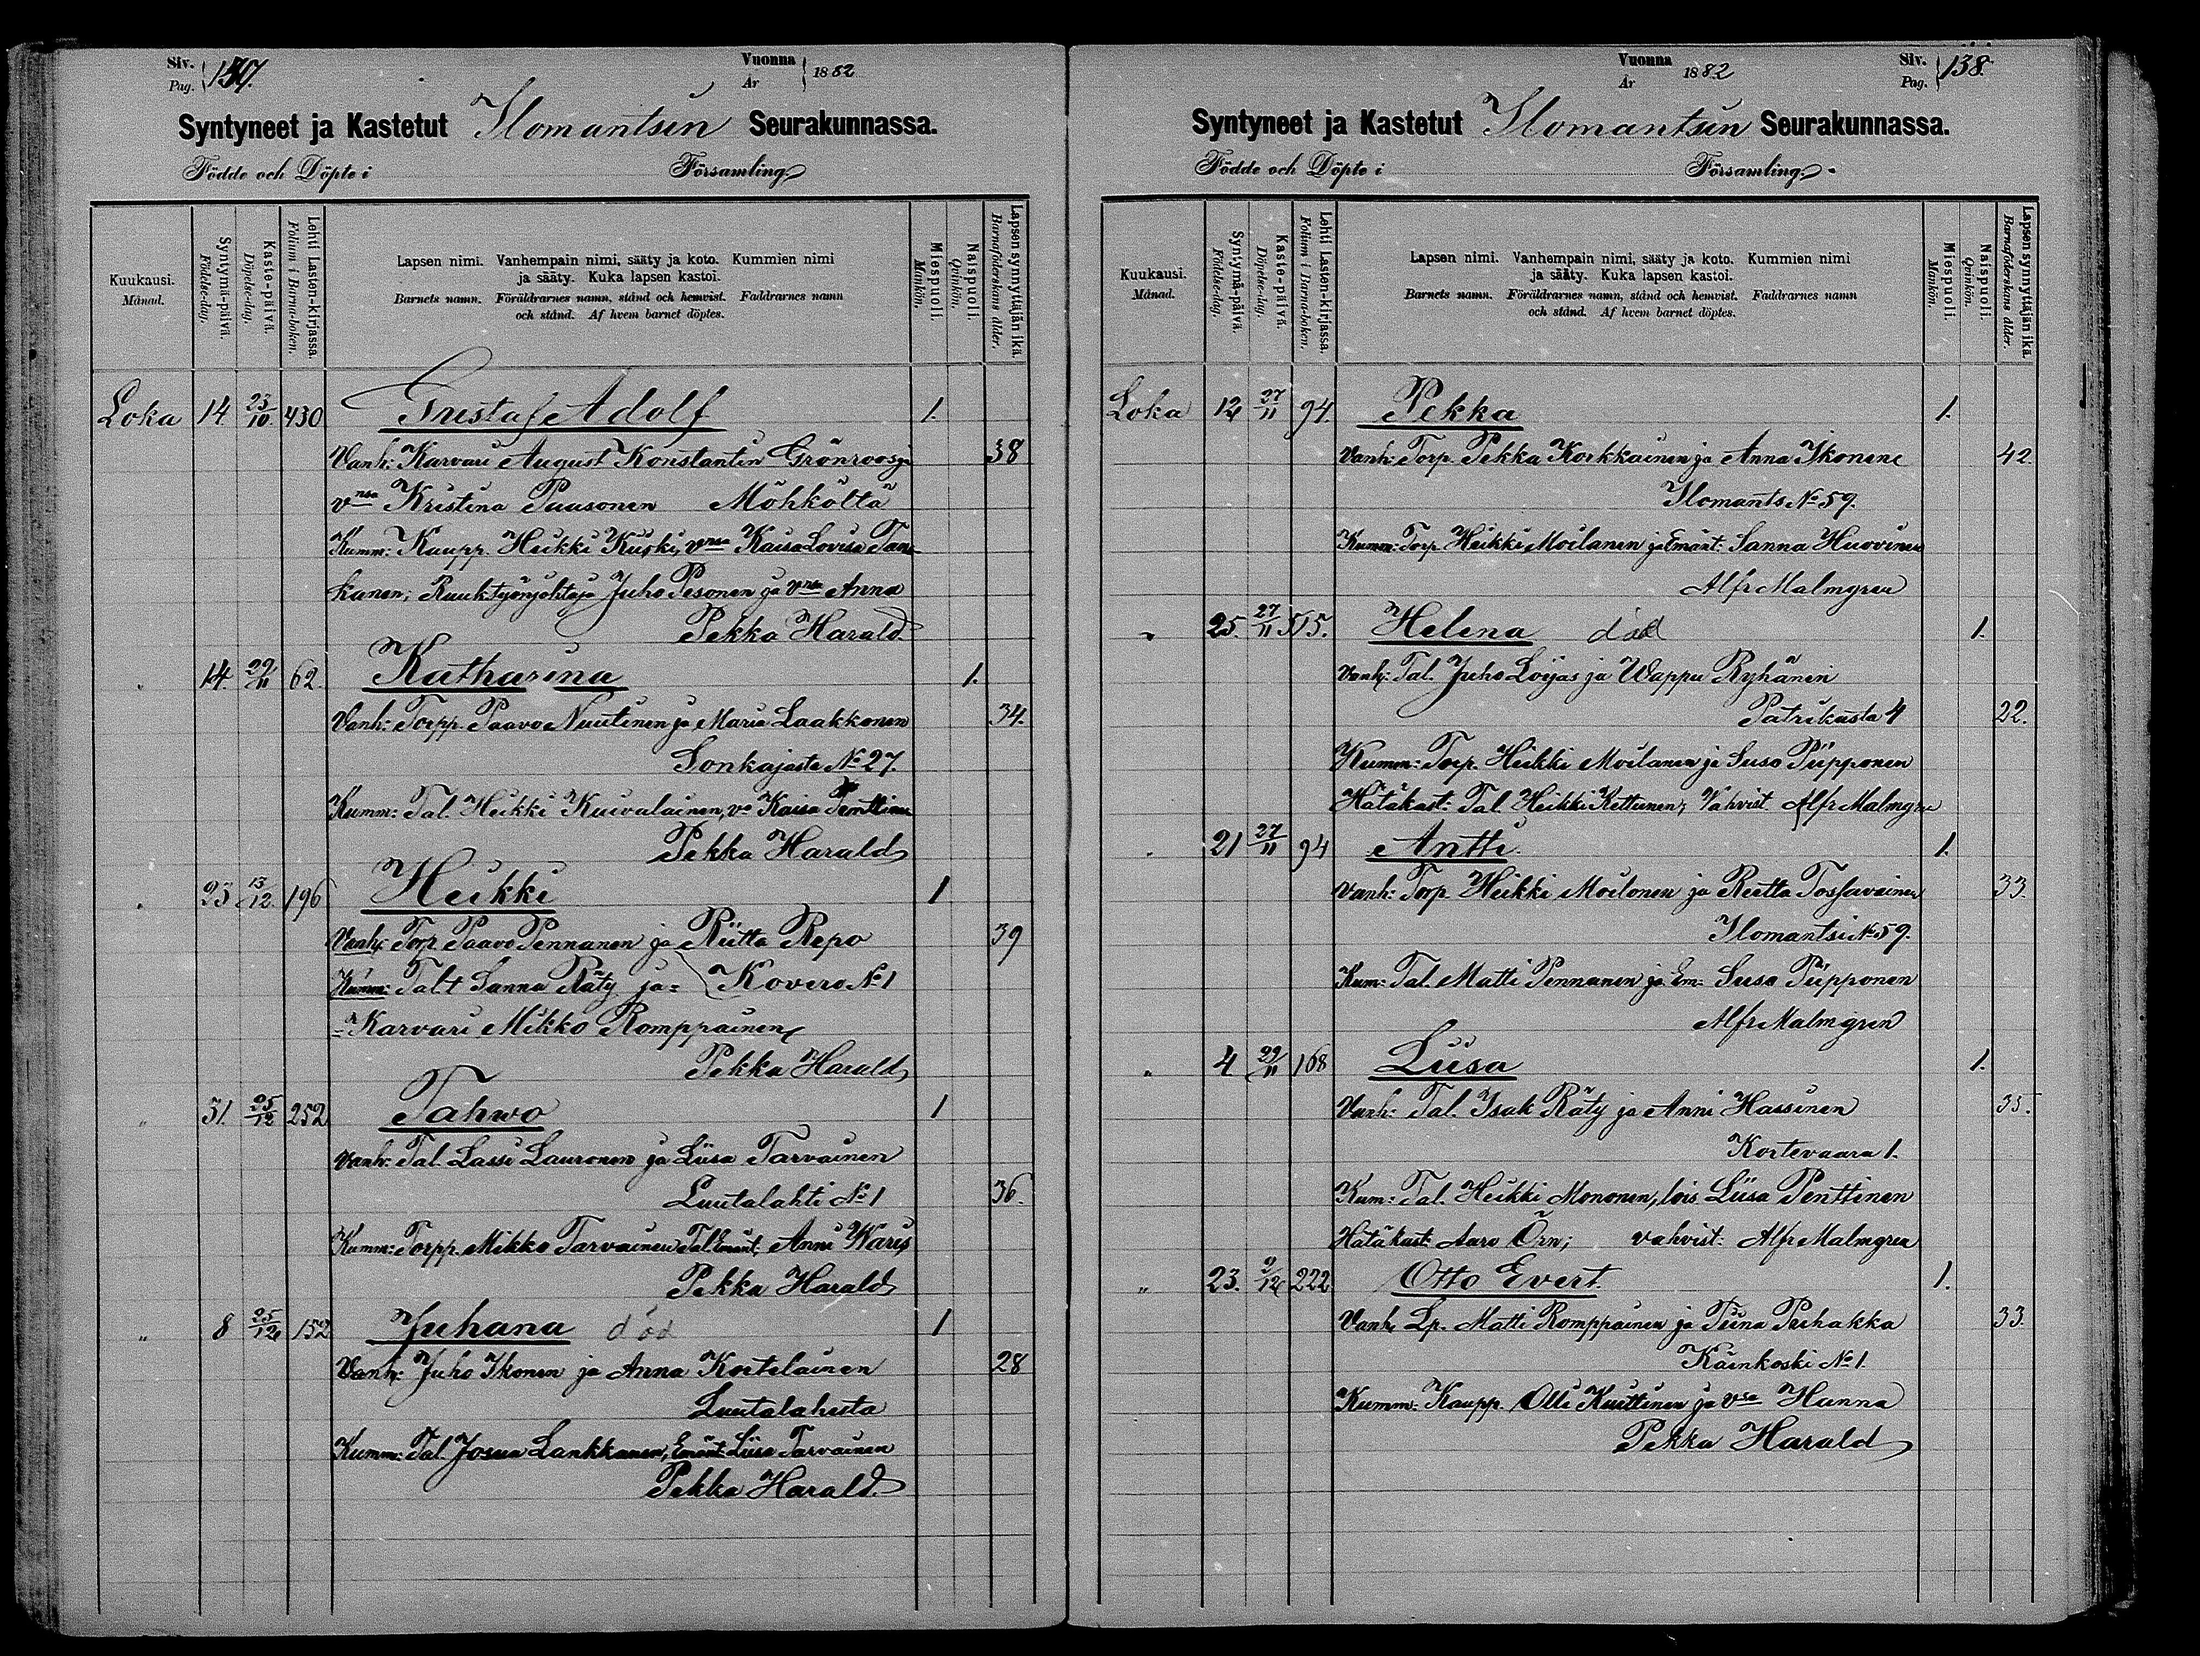 Siv. Pag. 137. Vuonna År 1882
Syntyneet ja Kastetut Ilomantsin Seurakunnassa.
Födde och Döpte i Församling
Kuukausi. Månad.
Syntymä-päivä. Födelse-dag.
Kaste-päivä. Döpelse-dag.
Lehti Lasten-kirjassa. Folium i Barna-boken.
Lapsen nimi. Vanhempain nimi, sääty ja koto. Kummien nimi
ja sääty. Kuka lapsen kastoi.
Barnets namn. Föräldrarnes namn, stånd och hemvist. Faddrarnes namn
och stånd. Af hvem barnet döptes.
Miespuoli. Mankön.
Naispuoli. Qvinkön.
Lapsen synnyttäjän ikä. Barnaföderskans ålder.
Loka 14. 23/10. 430 Gustaf Adolf 1.
Vanh: Karvari August Konstantin Grönroos ja 38
vnsa Kristina Paasonen Möhköltä
Kumm: Kaupp. Heikki Kuoki, vnsa Kaisa Lovisa Tans-
kanen; Ruuk. Työnjohtaja Juho Pesonen ja vnsa Anna
Pekka Harald
" 14. 22/11 62. Katharina 1.
Vanh: Torpp. Paavo Nuutinen ja Maria Laakkonen 34.
Sonkajasta No 27.
Kumm: Tal. Heikki Kuivalainen, vo Kaisa Penttinen
Pekka Harald
" 23 13/12 196 Heikki 1
Vanh: Torp Paavo Pennanen ja Riitta Repo 39
Kumm: Talt Sanna Räty ja= Kovero No 1
=Karvari Mikko Romppainen
Pekka Harald
" 31. 25/12 252 Tahwo 1
Vanh: Tal. Lassi Lauronen ja Liisa Tarvainen
Luutalahti No 1 36.
Kumm: Torpp. Mikko Tarvainen Tal. Emänt. Anni Karis
Pekka Harald
" 8 25/12 152 Juhana död 1
Vanh: Juho Ikonen ja Anna Kortelainen 28
Luutalahesta
Kumm: Tal. Josua Lankkanen, Emänt. Liisa Tarvainen
Pekka Harald.
Vuonna År 1882 Siv. Pag. 138.
Syntyneet ja Kastetut Ilomantsin Seurakunnassa.
Födde och Döpte i Församling
Kuukausi. Månad.
Syntymä-päivä. Födelse-dag.
Kaste-päivä. Döpelse-dag.
Lehti Lasten-kirjassa. Folium i Barna-boken.
Lapsen nimi. Vanhempain nimi, sääty ja koto. Kummien nimi
ja sääty. Kuka lapsen kastoi.
Barnets namn. Föräldrarnes namn, stånd och hemvist. Faddrarnes namn
och stånd. Af hvem barnet döptes.
Miespuoli. Mankön.
Naispuoli. Qvinkön.
Lapsen synnyttäjän ikä. Barnaföderskans ålder.
Loka 12 27/11 94. Pekka 1.
Vanh: Torp. Pekka Korkkainen ja Anna Ikonen 42.
Ilomants No 59.
Kumm: Torp. Heikki Moilanen ja Emänt: Sanna Huovinen
Alfr Malmgren
" 25. 27/11 515. Helena död 1.
Vanh: Tal. Juho Loijas ja Wappu Ryhänin
Patrikasta 4 22.
Kumm: Torp. Heikki Moilanen ja Susa Piipponen
Hätäkast: Tal. Heikki Kettunen; Vahvist. Alfr Malmgren
" 21 27/11 94 Antti 1.
Vanh: Torp. Heikki Moilonen ja Reitta Tossavainen 33.
Ilomantsi No 59.
Kum: Tal. Matti Pennanen ja Em: Susa Piipponen
Alfr Malmgren
" 4 29/11 168 Liisa 1.
Vanh: Tal. Isak Räty ja Anni Hassinen 35.
Kortevaara 1.
Kum: Tal. Heikki Mononen, lois Liisa Penttinen
Hätäkast: Aaro Örn; vahvist: Alfr Malmgren
" 23. 2/12 222 Otto Evert 1.
Vanh: Lp. Matti Romppainen ja Tiina Peihakka 33.
Käenkoski No 1.
Kumm: Kaupp. Olli Kuittinen ja vsa Hanna
Pekka Harald